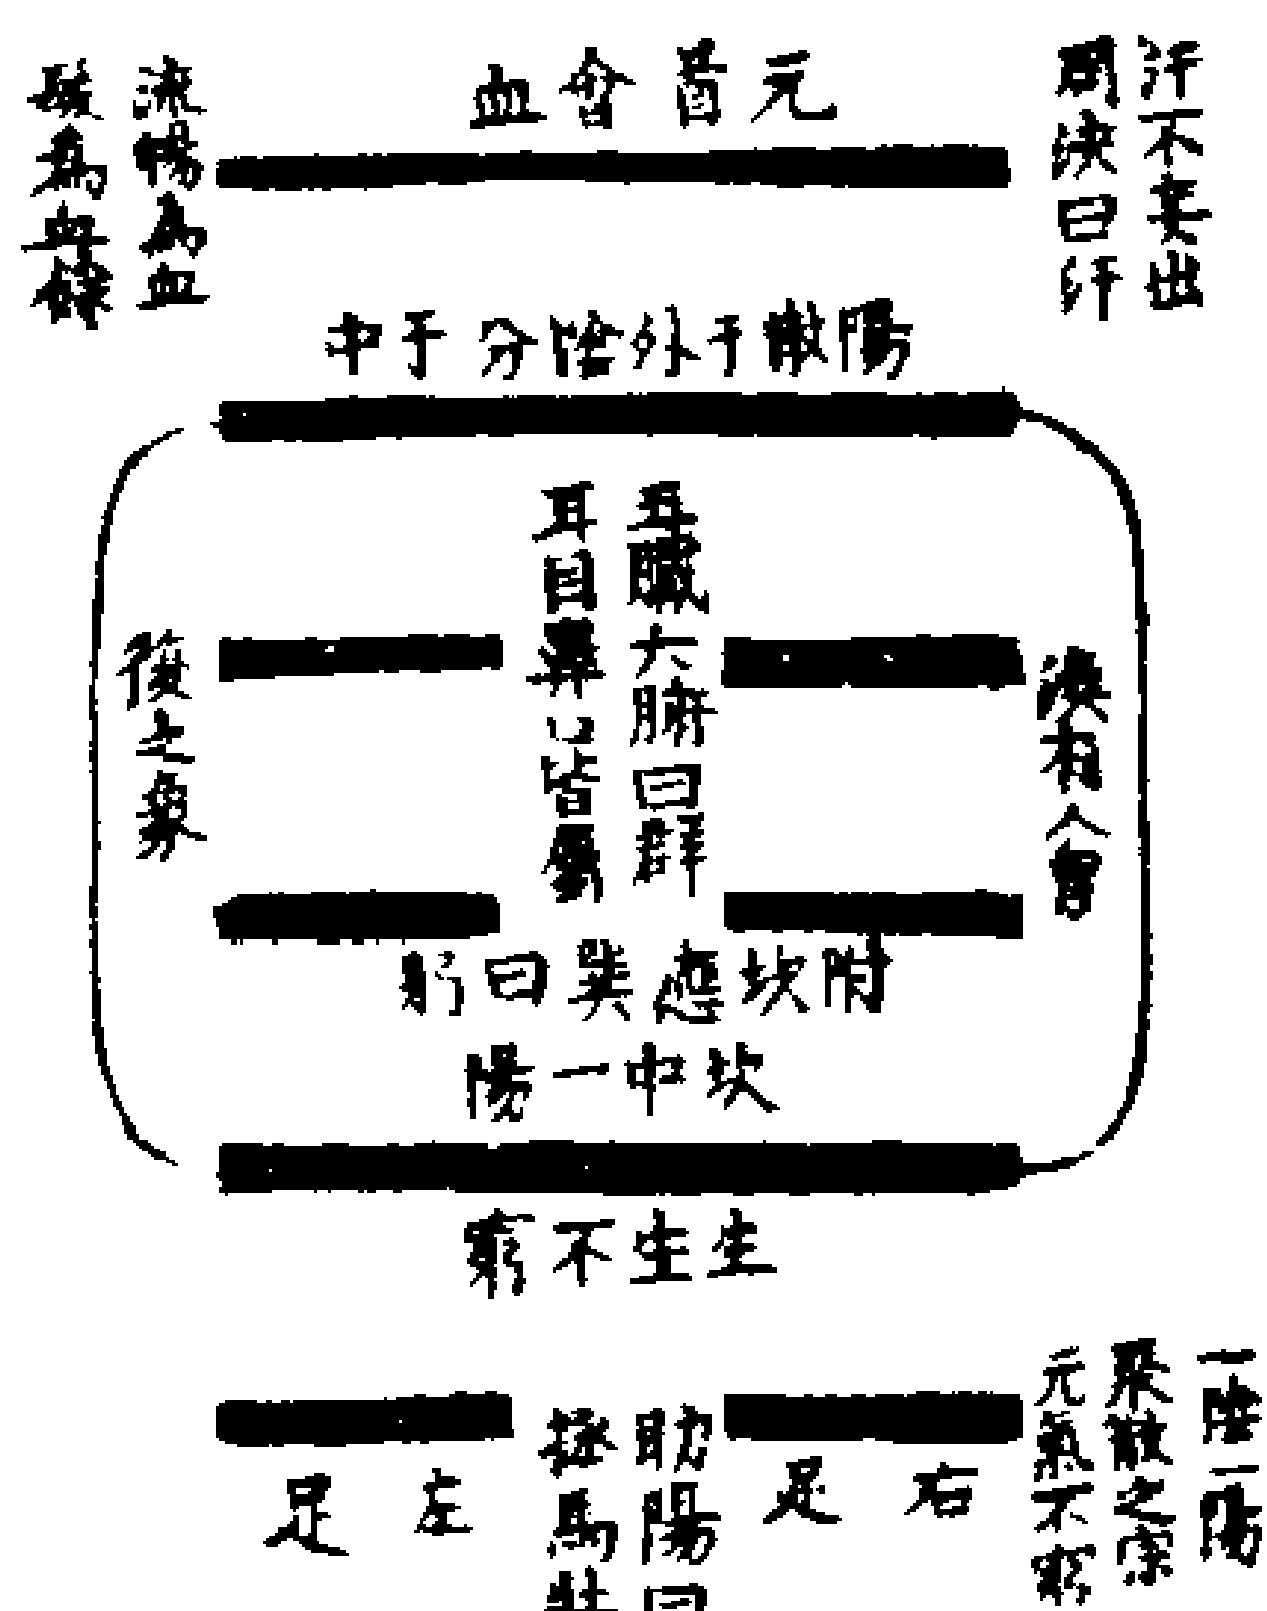 汗不妄出
周浹曰汗
元首會血
流暢為血
髮為血餘
陽散于外陰分于中
渙有人
五臟六腑曰群
耳目鼻口皆屬
之象
附坎應巽曰躬
坎中一陽
生生不窮
一陰一陽
聚散之宗
元氣不窮
右足
陽曰
拯馬壯
左足